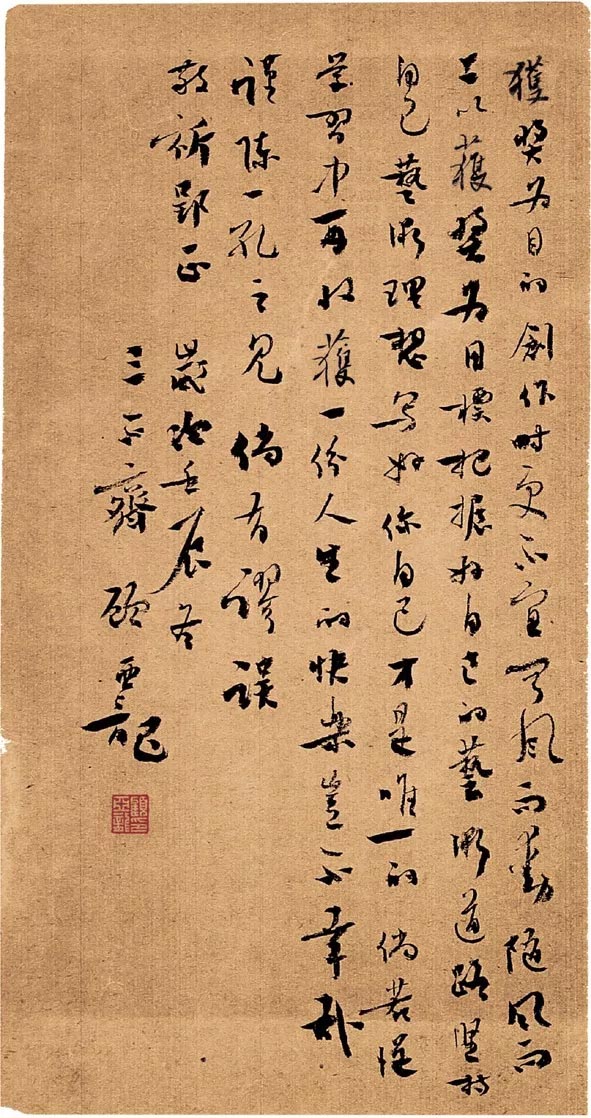 獲獎为目的創作时更不宜闻風而動随風而
上以獲獎为目標把握好自己的藝術道路堅持
自己藝術理想写好你自己才是唯一的倘若従
学習中再收獲一份人生的快樂豈不幸哉
謹陳一孔之见倘有謬誤
敬祈郢正 歲次壬辰冬
三不齋 顾亞龍記
顧印亞龍